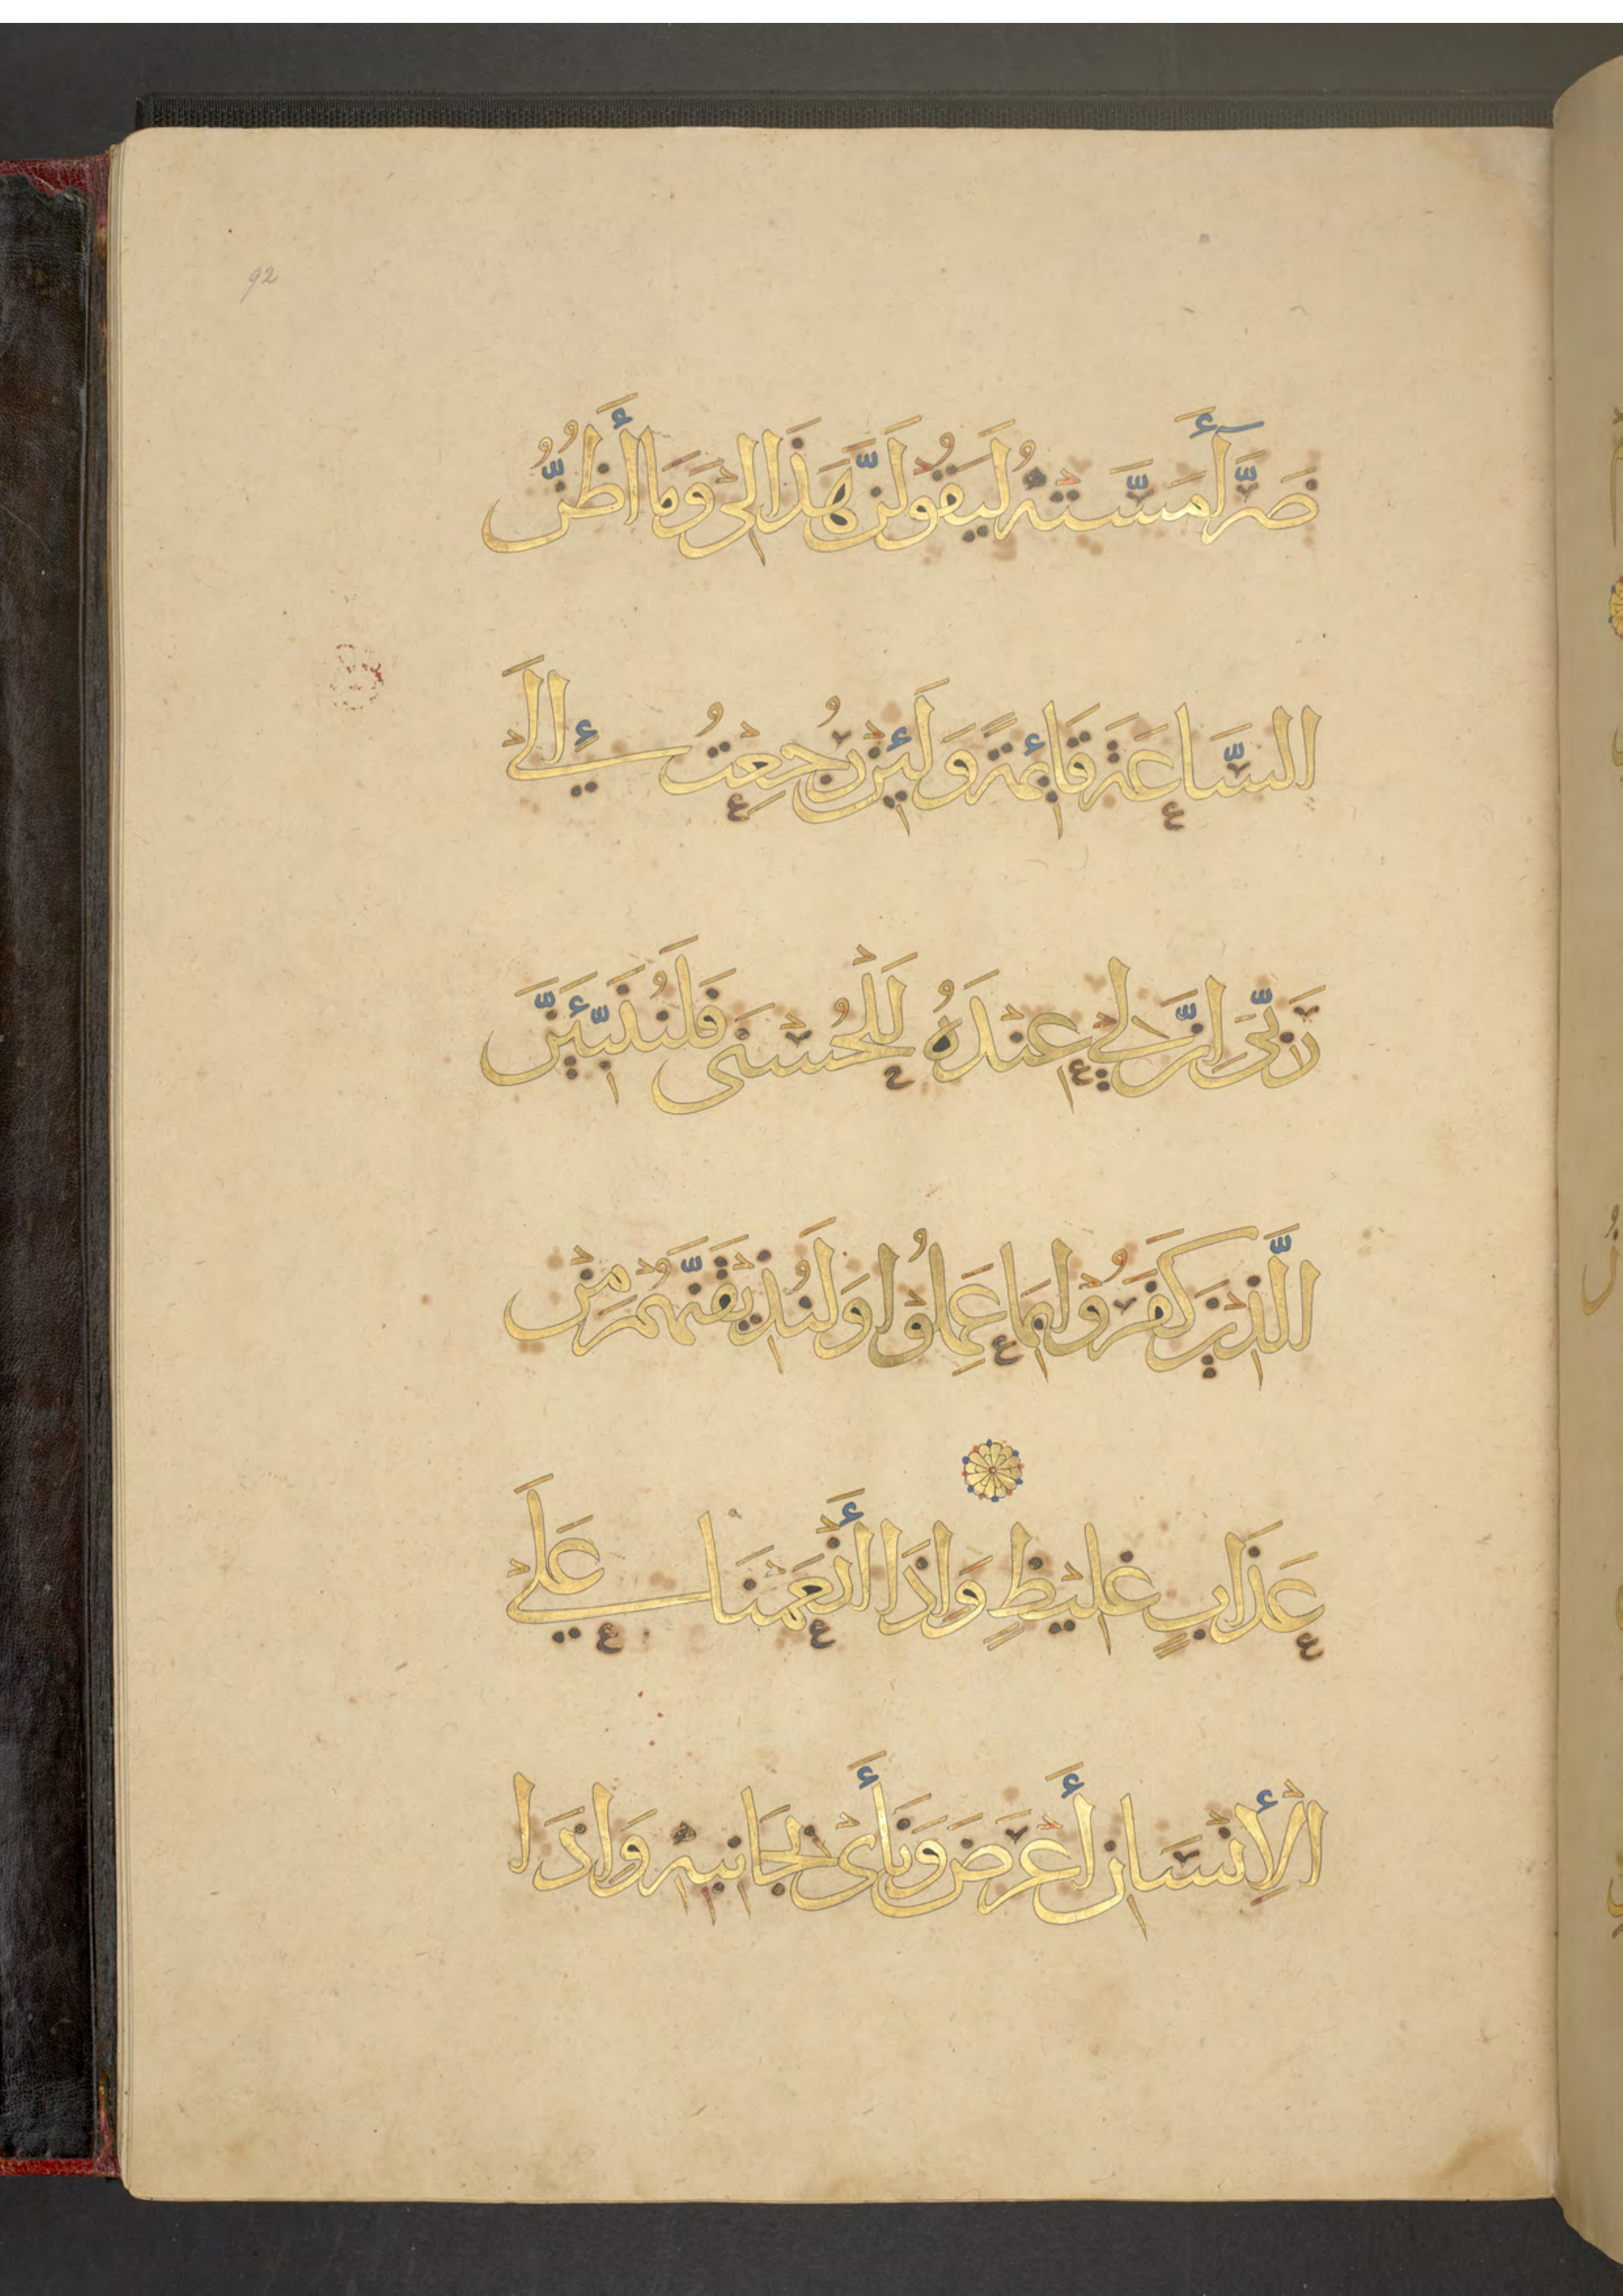 92
ضَرَّآءَ مَسَّتْهُ لَيَقُولَنَّ هَذَا لِي وَمَا أَظُنُّ
السَّاعَةَ قَائِمَةً وَلَئِنْ رُجِعْتُ إِلَى
رَبِّي إِنَّ لِي عِنْدَهُ لَلْحُسْنَى فَلَنُنَبِّئَنَّ
الَّذِينَ كَفَرُوا بِمَا عَمِلُوا وَلَنُذِيقَنَّهُمْ مِنْ
عَذَابٍ غَلِيظٍ وَإِذَا أَنْعَمْنَا عَلَى
الْإِنْسَانِ أَعْرَضَ وَنَأَى بِجَانِبِهِ وَإِذَا